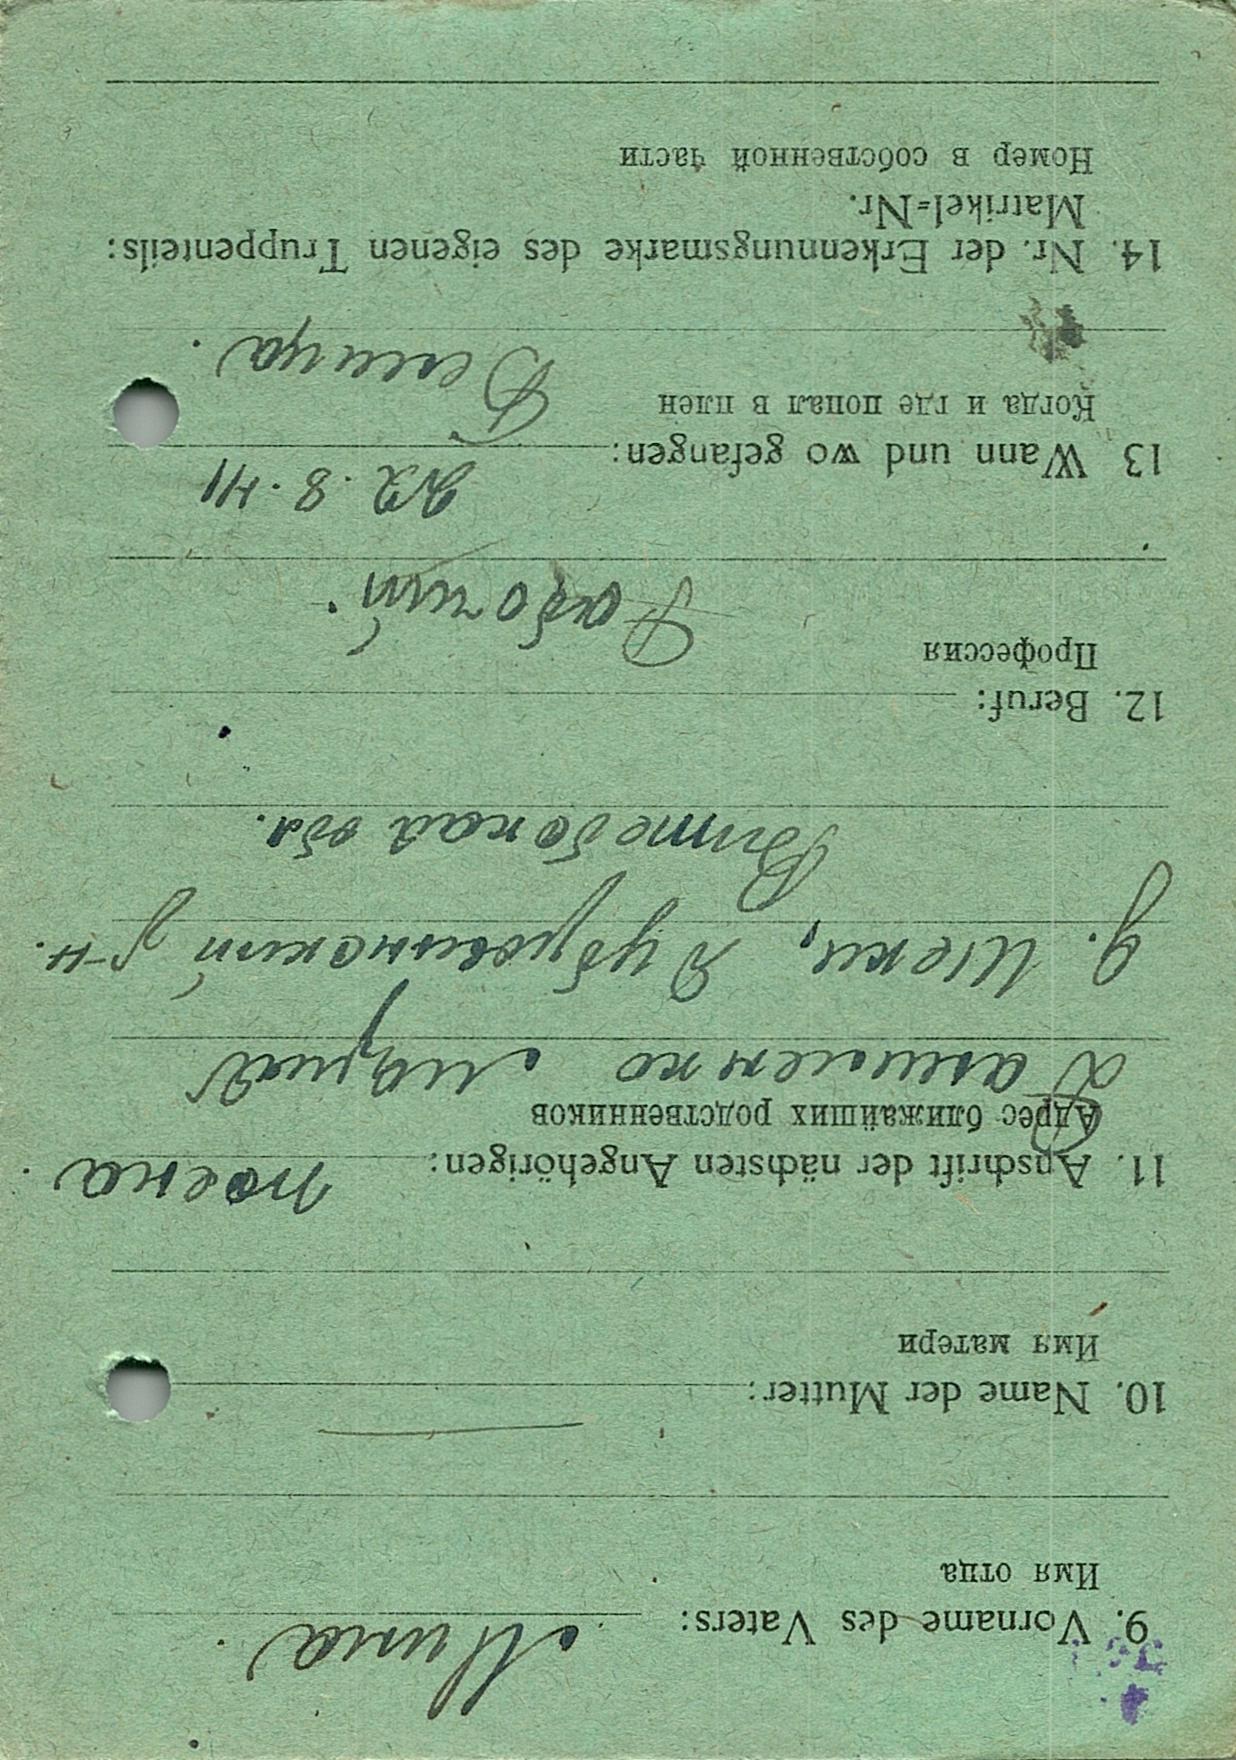 9. Vorname des Vaters: Мина.
Имя отца
10. Name der Mutter: —
Имя матери
11. Anschrift der nächsten Angehörigen: жена.
Адрес ближайших родственников
Мария
д. Шеки, Дубровенский р-н.
Витебская обл.
12. Beruf:
Профессия
Рабочий.
22. 8. 41
13 Wann und wo gefangen:
Когда и где попал в плен
14. Nr. der Erkennungsmarke des eigenen Truppenteils:
Matrikel=Nr.
Номер в собственной части